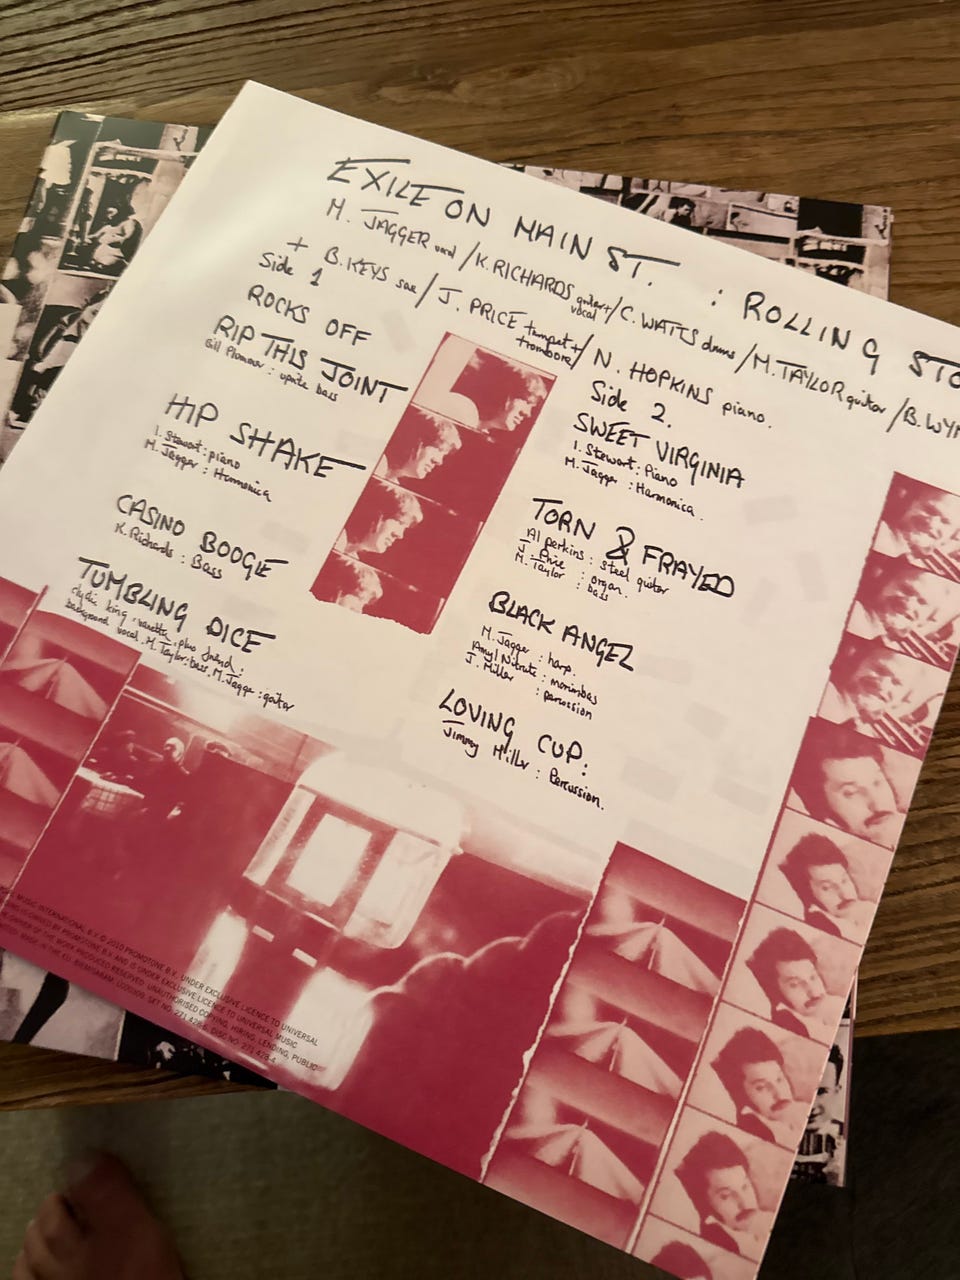 EXILE ON MAIN ST. : ROLLING STO
M. JAGGER /K. RICHARDS guitar + vocal /C. WATTS drums /M. TAYLOR guitar /B. WYM
+ B. KEYS sax / J. PRICE trumpet + trombone / N. HOPKINS piano.
Side 1
ROCKS OFF
RIP THIS JOINT
Bill Plummer : uprite bass
HIP SHAKE
I. Stewart : piano
M. Jagger : Harmonica
CASINO BOOGIE
K. Richards : Bass
TUMBLING DICE
clydie king, vanetta, plus friend :
background vocal. M. Taylor : bass. M. Jagger : guitar
Side 2.
SWEET VIRGINIA
I. Stewart : Piano
M. Jagger : Harmonica.
TORN & FRAYED
Al perkins : steel guitar
J. Price : organ.
M. Taylor : bass
BLACK ANGEL
M. Jagger : harp.
Amyl Nitrate : marimbas
J. Miller : percussion
LOVING CUP:
Jimmy Miller : Percussion.
MUSIC INTERNATIONAL B.V. © 2010 PROMOTONE B.V. UNDER EXCLUSIVE LICENCE TO UNIVERSAL
IS OWNED BY PROMOTONE B.V. AND IS UNDER EXCLUSIVE LICENCE TO UNIVERSAL MUSIC
OWNER OF THE WORK PRODUCED RESERVED. UNAUTHORISED COPYING, HIRING, LENDING, PUBLIC
MADE IN THE EU.